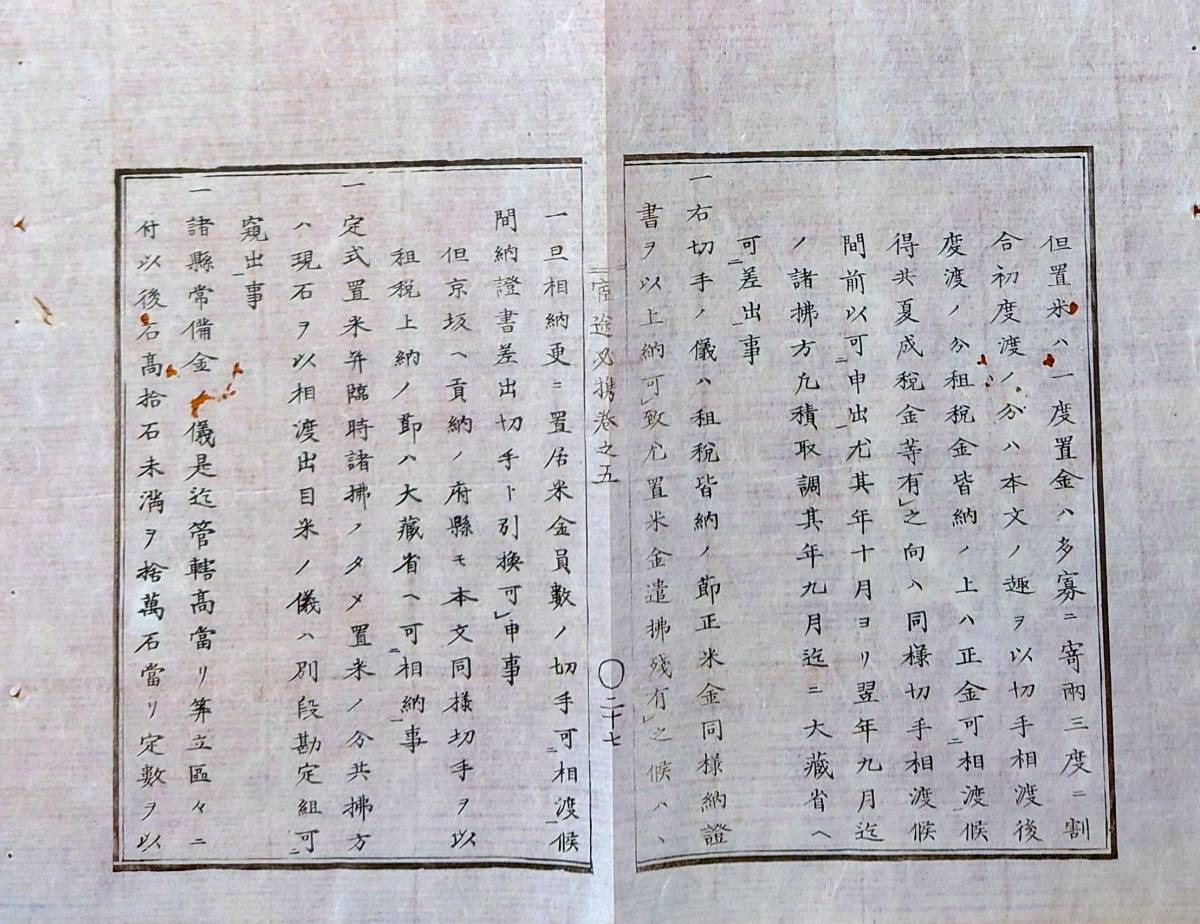 但置米ハ一度置金ハ多寡ニ寄兩三度ニ割
合初度渡ノ分ハ本文ノ趣ヲ以切手相渡後
度渡ノ分租税金皆納ノ上ハ正金可㆓相渡㆒候
得共夏成税金等有㆑之向ハ同様切手相渡候
間前以可㆓申出㆒尤其年十月ヨリ翌年九月迄
ノ諸拂方凢積取調其年九月迄ニ大藏省ヘ
可㆓差出㆒事
一右切手ノ儀ハ租税皆納ノ節正米金同様納證
書ヲ以上納可㆑致尤置米金遣拂殘有㆑之候ハヽ
官途必携巻之五
〇二十七
一旦相納更ニ置居米金員數ノ切手可㆓相渡㆒候
間納證書差出切手ト引換可㆑申事
但京坂ヘ貢納ノ府縣モ本文同樣切手ヲ以
租税上納ノ節ハ大藏省ヘ可㆓相納㆒事
一定式置米并臨時諸拂ノタメ置米ノ分共拂方
ハ現石ヲ以相渡出目米ノ儀ハ別段勘定組可㆓
窺出㆒事
一諸縣常備金ノ儀是迄管轄高當リ筭立區々ニ
付以後石高拾石未滿ヲ捨萬石當リ定數ヲ以